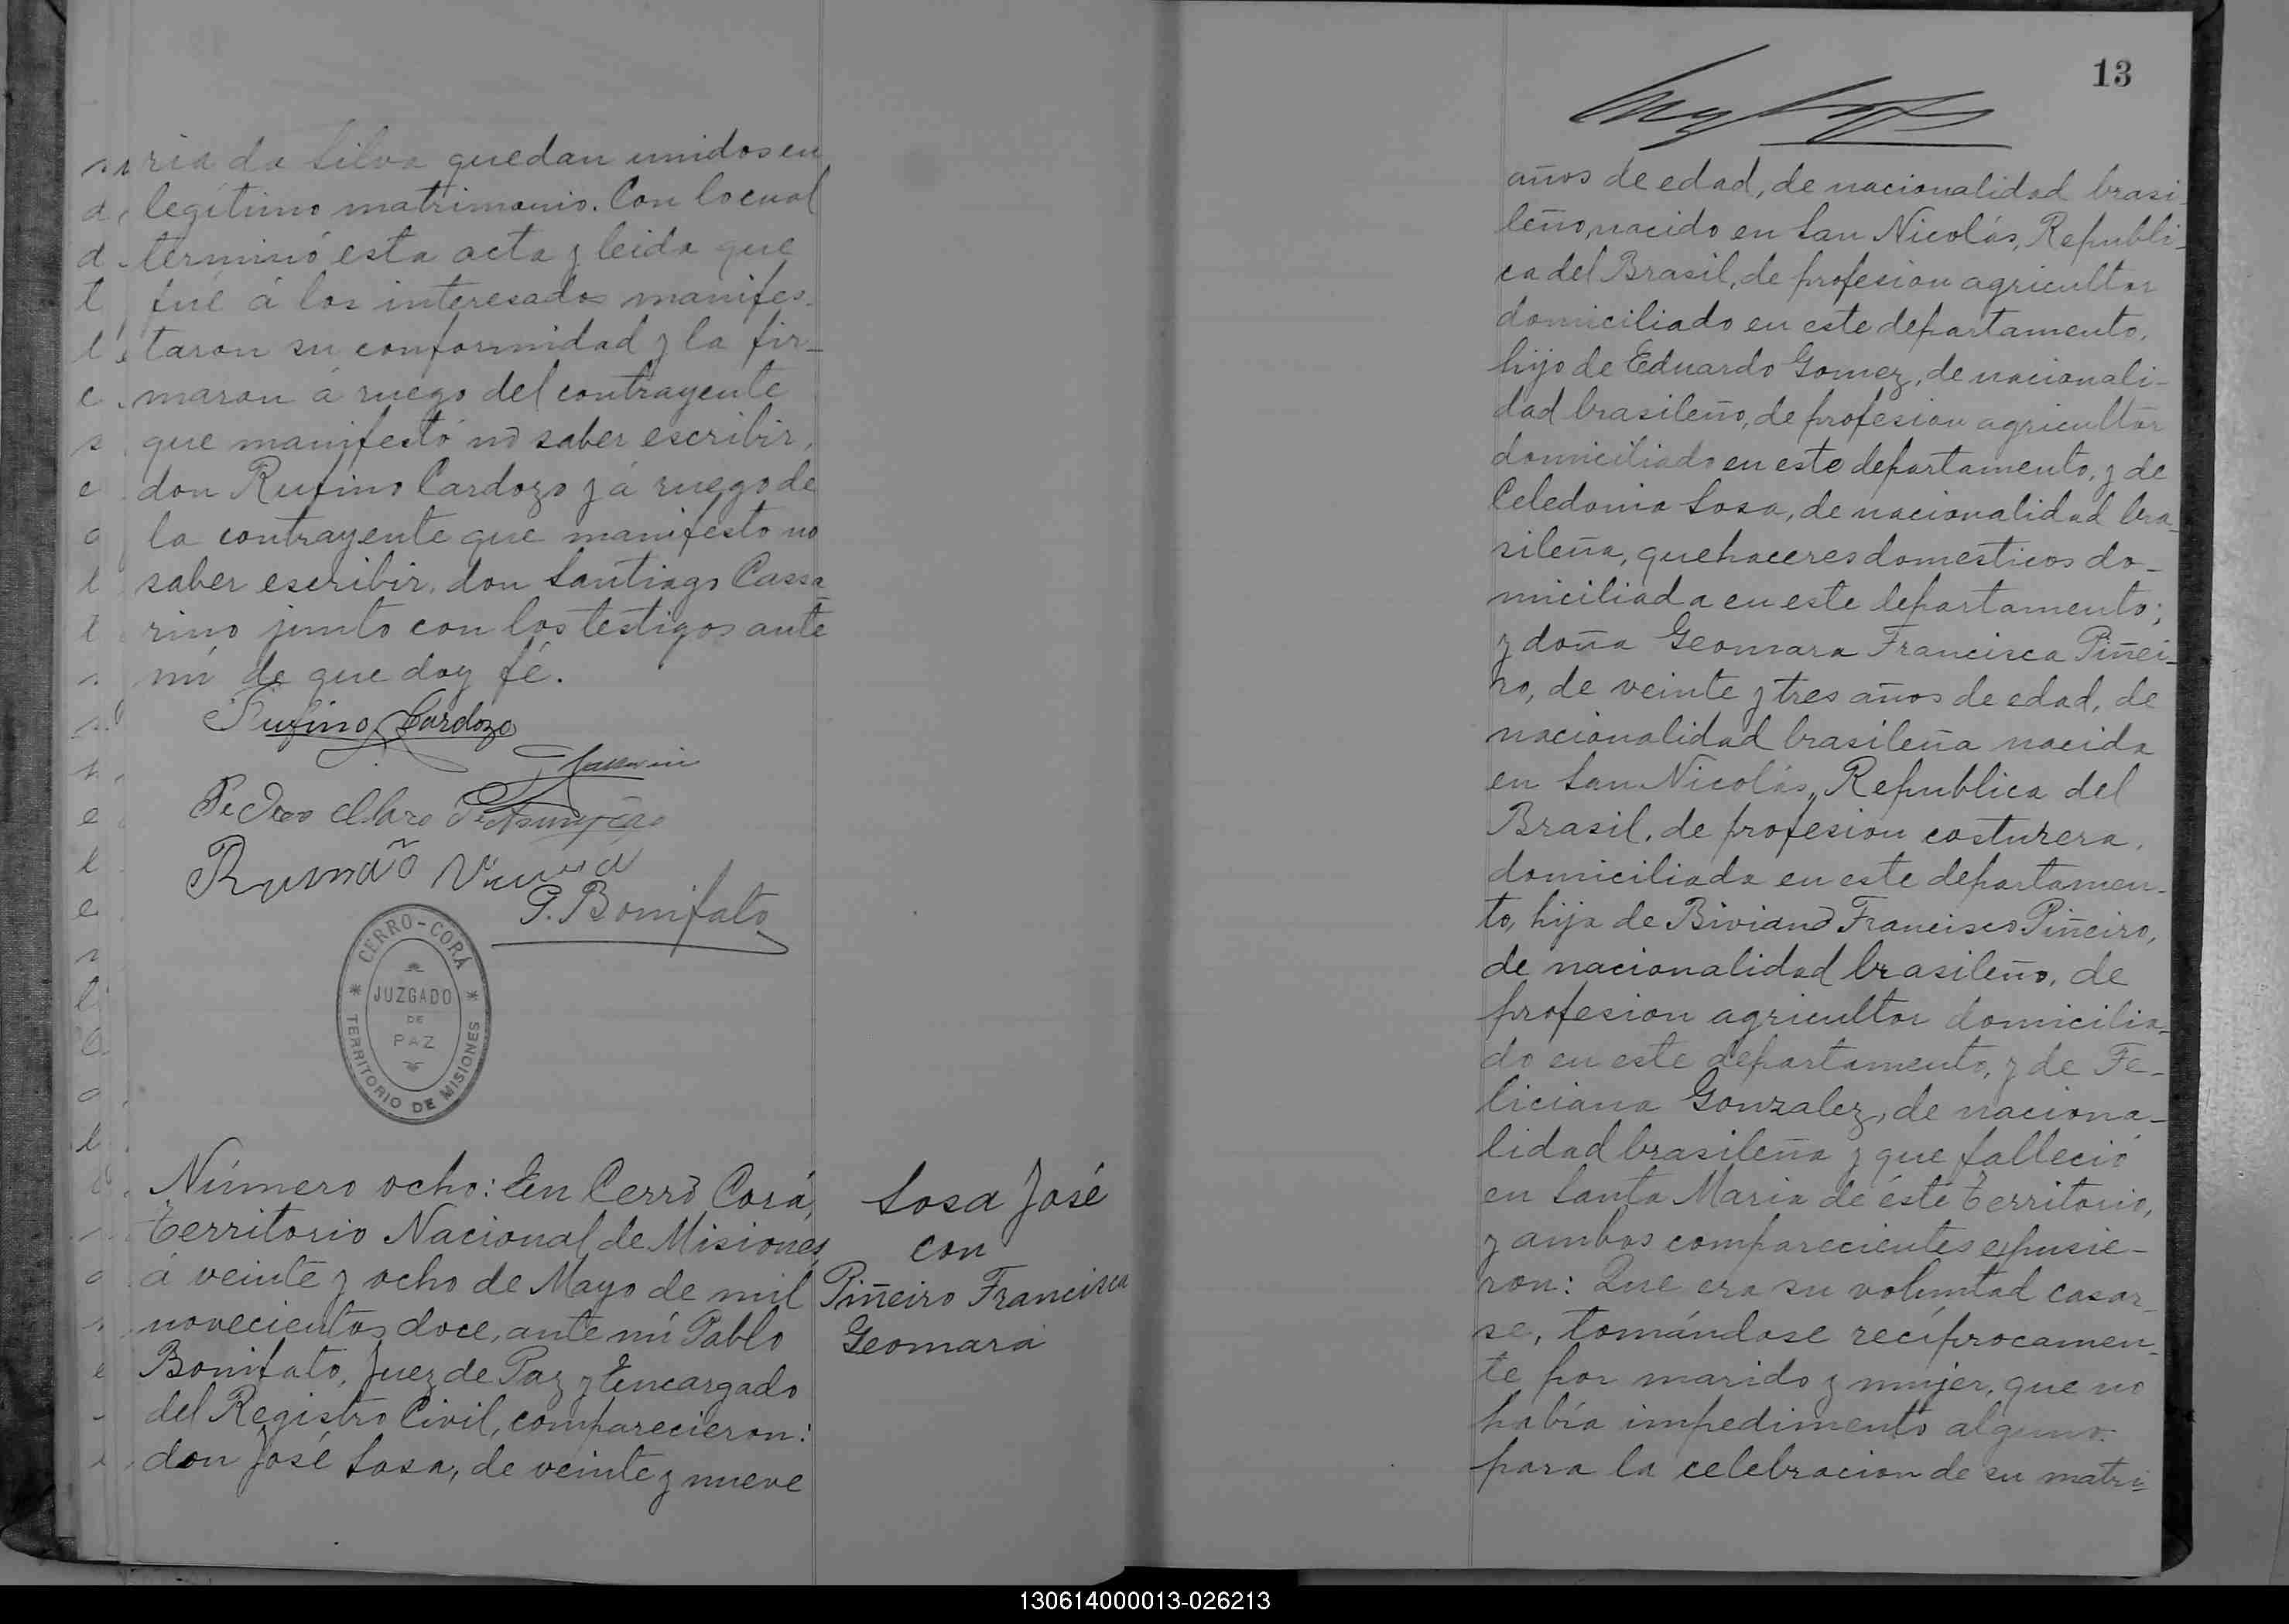 ria da Silva quedan unidos en
legítimo matrimonio. Con lo cual
terminó esta acta y leida que
fué á los interesados manifes-
taron su conformidad y la fir-
maron á ruego del contrayente
que manifestó no saber escribir,
don Rufino Cardozo y á ruego de
la contrayente que manifesto no
saber escribir, don Santiago Cassa-
rino junto con los testigos ante
mí de que doy fé.
Rufino Cardozo
Pedro
P. Bonifato
CERRO-CORÁ
JUZGADO
DE
PAZ
TERRITORIO DE MISIONES
Número ocho: En Cerro Corá,
Territorio Nacional de Misiones,
á veinte y ocho de Mayo de mil
novecientos doce, ante mí Pablo
Bonifato, Juez de Paz y Encargado
del Registro Civil, comparecieron:
don José Sosa, de veinte y nueve
Sosa José
con
Piñeiro Francisca
Geomara
13
años de edad, de nacionalidad brasi-
leño, nacido en San Nicolás, Republi-
ca del Brasil, de profesion agricultor
domiciliado en este departamento,
hijo de Eduardo Gomez, de nacionali-
dad brasileño, de profesion agricultor
domiciliado en este departamento, y de
Celedonia Sosa, de nacionalidad bra-
sileña, quehaceres domesticos do-
miciliada en este departamento;
y doña Geomara Francisca Piñei-
ro, de veinte y tres años de edad, de
nacionalidad brasileña nacida
en San Nicolás, Republica del
Brasil, de profesion costurera,
domiciliada en este departamen-
to, hija de Biviano Francisco Piñeiro,
de nacionalidad brasileño, de
profesion agricultor domicilia-
do en este departamento, y de Fe-
liciana Gonzalez, de naciona-
lidad brasileña y que falleció
en Santa Maria de éste territorio,
y ambos comparecientes expusie-
ron: Que era su voluntad casar-
se, tomándose recíprocamen-
te por marido y mujer, que no
había impedimento alguno
para la celebracion de su matri-
130614000013-026213